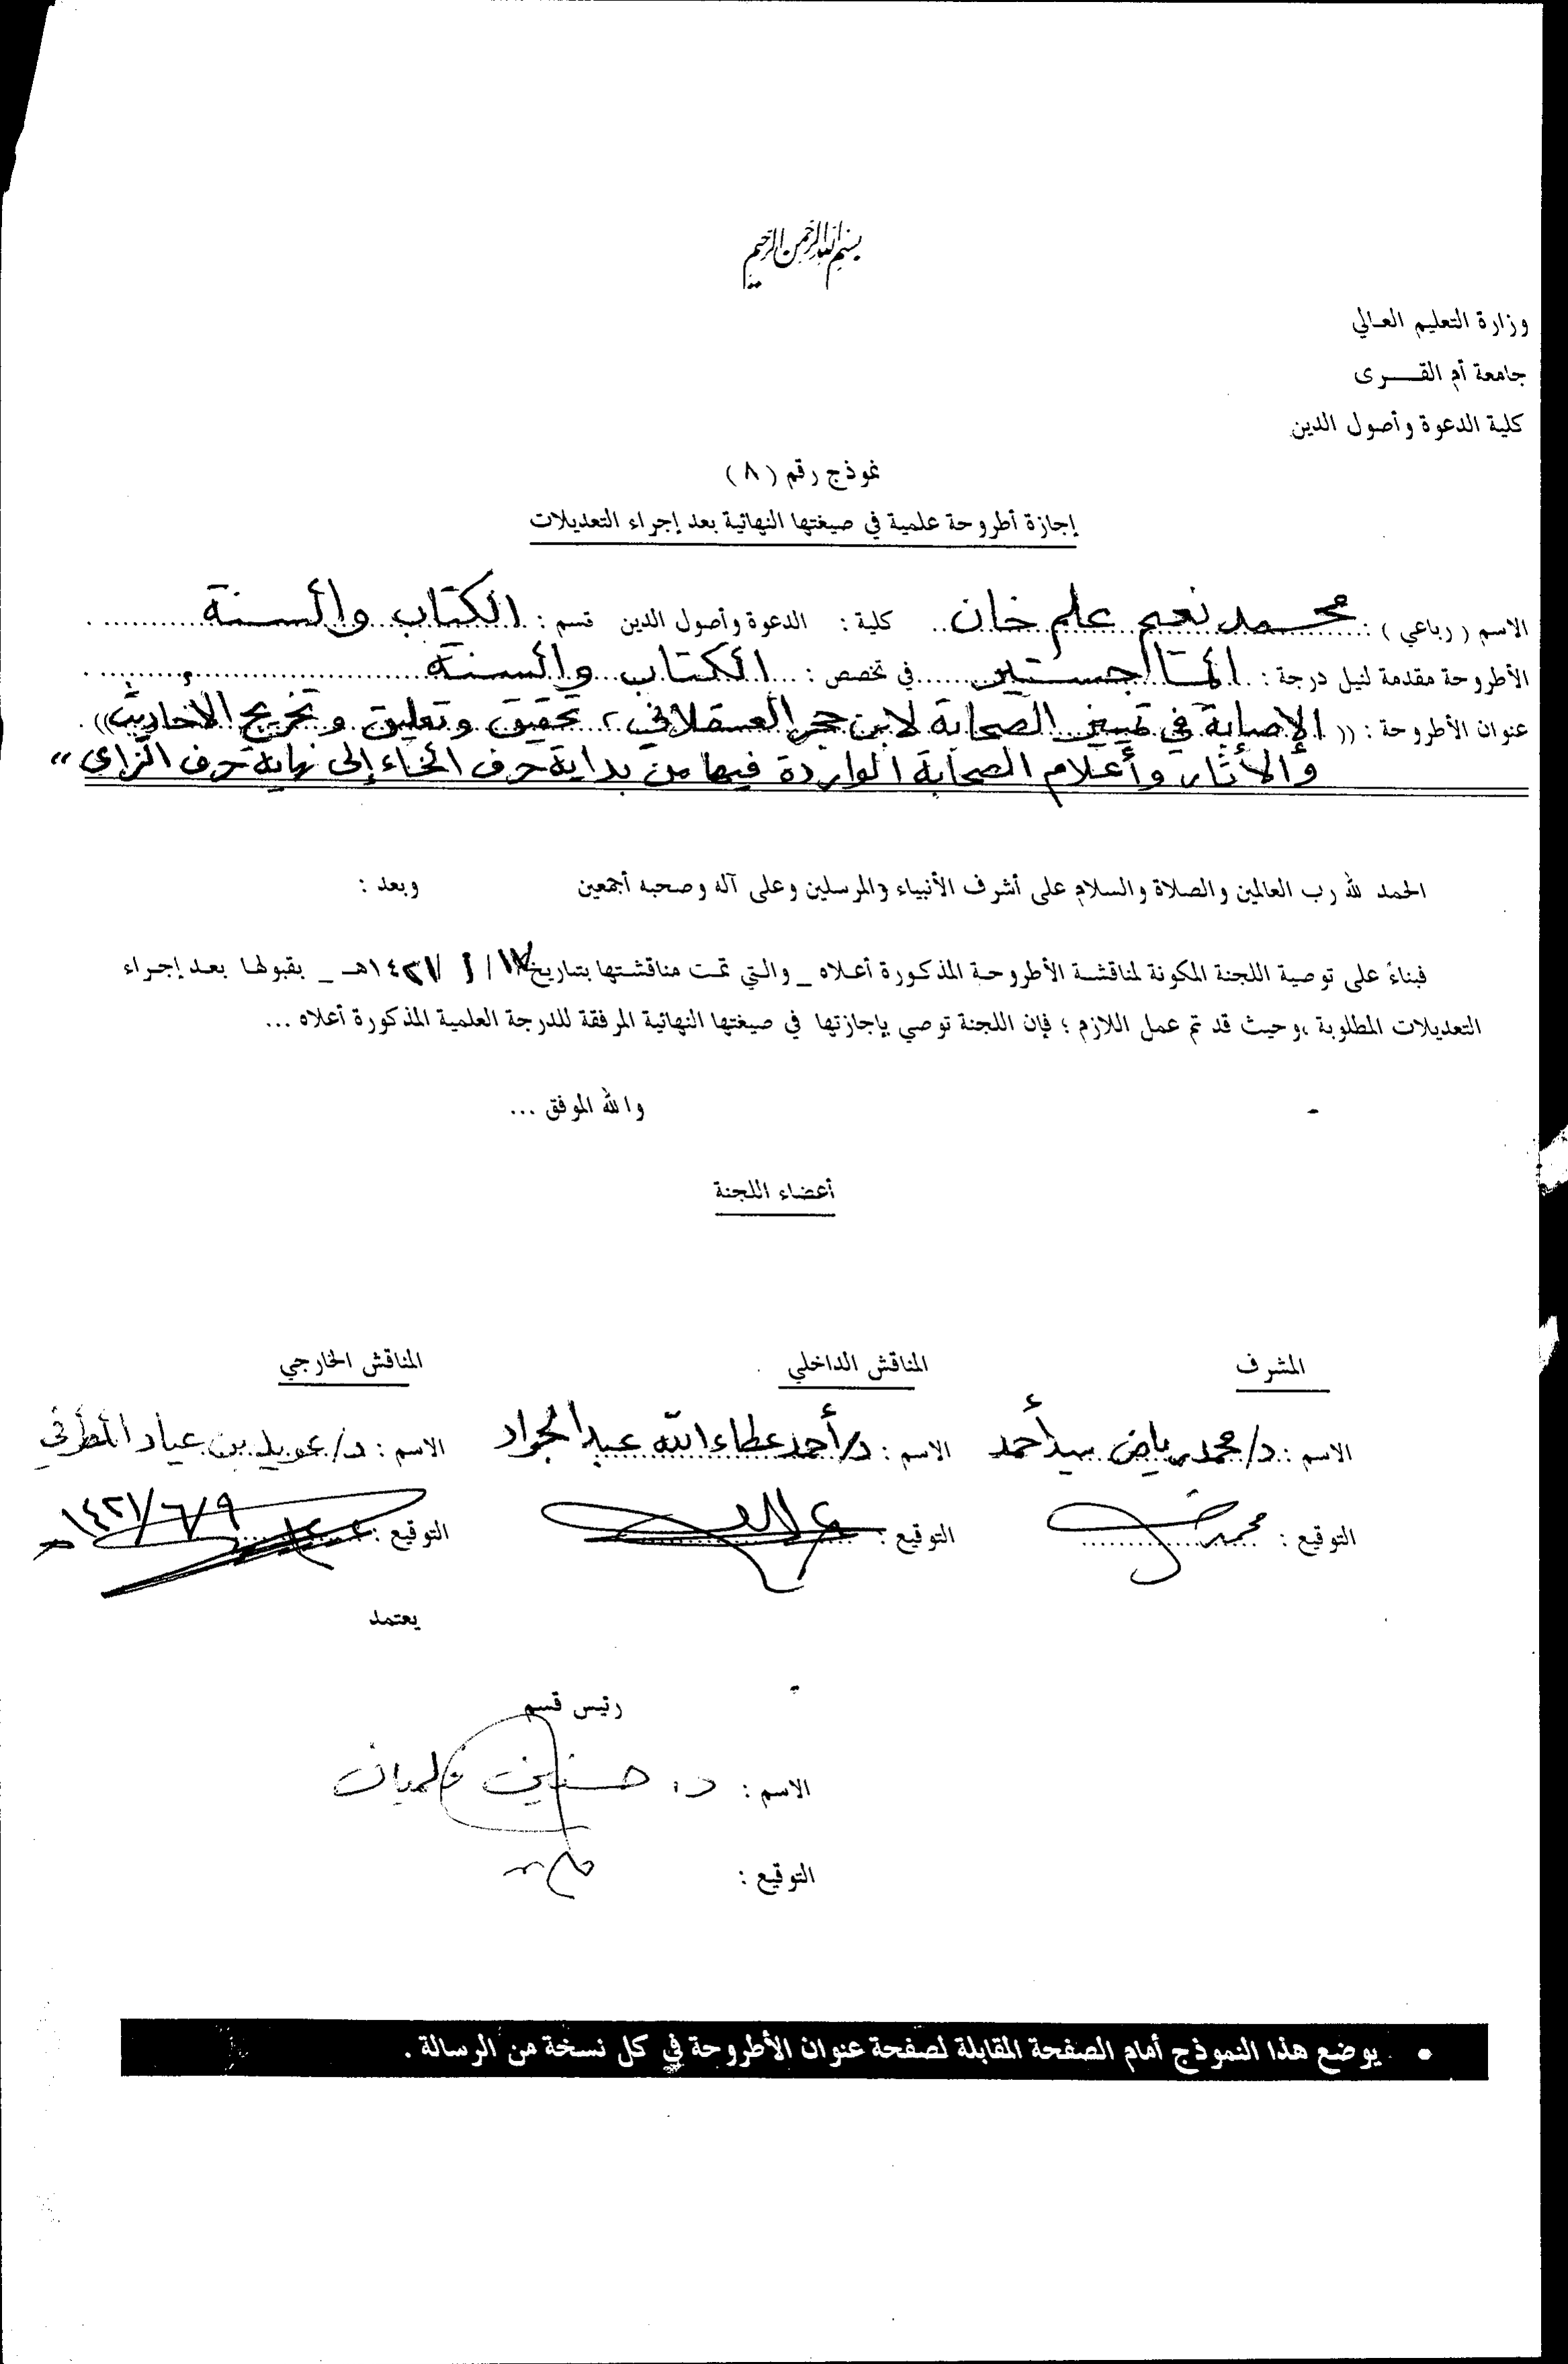 بسم الله الرحمن الرحيم
وزارة التعليم العالي
جامعة أم القــــرى
كلية الدعوة وأصول الدين
نموذج رقم ( ٨ )
إجازة أطروحة علمية في صيغتها النهائية بعد إجراء التعديلات
الاسم ( رباعي ) : محمد نعيم علم خان كلية : الدعوة وأصول الدين قسم : الكتاب والسنة
الأطروحة مقدمة لنيل درجة : الماجستير في تخصص : الكتاب والسنة
عنوان الأطروحة : (( الإصابة في تمييز الصحابة لابن حجر العسقلاني ، تحقيق وتعليق وتخريج الأحاديث )) .
والآثار وأعلام الصحابة الواردة فيها من بداية حرف الخاء إلى نهاية حرف الزاى ،،
الحمد لله رب العالمين والصلاة والسلام على أشرف الأنبياء والمرسلين وعلى آله وصحبه أجمعين وبعد :
فبناءً على توصية اللجنة المكونة لمناقشة الأطروحة المذكورة أعلاه _ والتي تمت مناقشتها بتاريخ / / ١٤٢١هـ _ بقبولها بعد إجراء
التعديلات المطلوبة ،وحيث قد تم عمل اللازم ؛ فإن اللجنة توصي بإجازتها في صيغتها النهائية المرفقة للدرجة العلمية المذكورة أعلاه ...
والله الموفق ...
أعضاء اللجنة
المشرف المناقش الداخلي المناقش الخارجي
الاسم : د/ محمد رياض سيد أحمد الاسم : د/ أحمد عطاء الله عبد الجواد الاسم : د/ عويد بن عياد المطرفي
التوقيع : محمد التوقيع : التوقيع : ١٤٢١/٦/٩ هـ
يعتمد
رئيس قسم
الاسم : د.
التوقيع :
• يوضع هذا النموذج أمام الصفحة المقابلة لصفحة عنوان الأطروحة في كل نسخة من الرسالة .